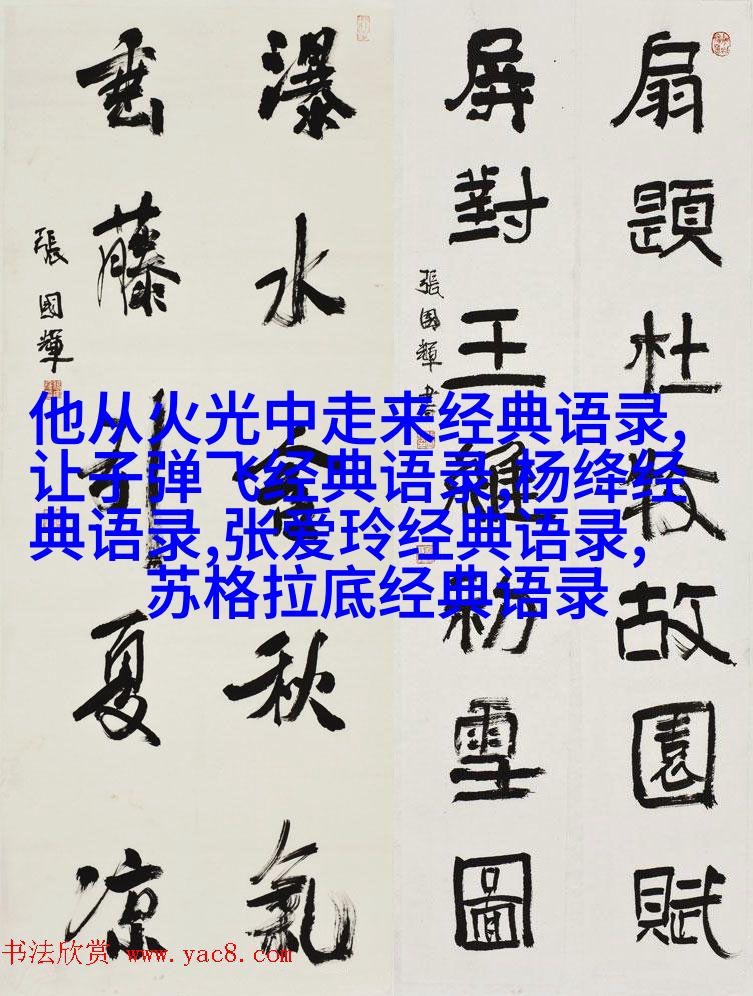 扇題杜牧故園賦
屏對王維初雪圖
張國輝書
瀑水含秋氣
垂藤引夏涼
張國輝
他从火光中走来经典语录,
让子弹飞经典语录,杨绛经
典语录,张爱玲经典语录,
苏格拉底经典语录
书法欣赏 www.yac8.com